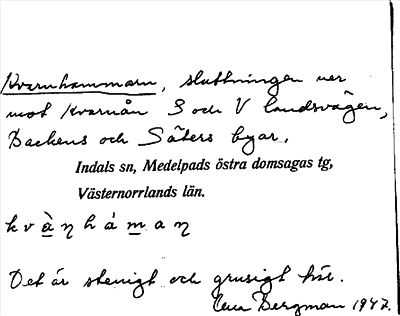 Kvarnhammarn, sluttningen ner
mot Kvarnån S och V landsvägen,
Backens och Säters byar.
Indals sn, Medelpads östra domsagas tg,
Västernorrlands län.
k v à̲ ŋ h á m̲ a ŋ
Det är stenigt och grusigt här.
Bergman 1947.